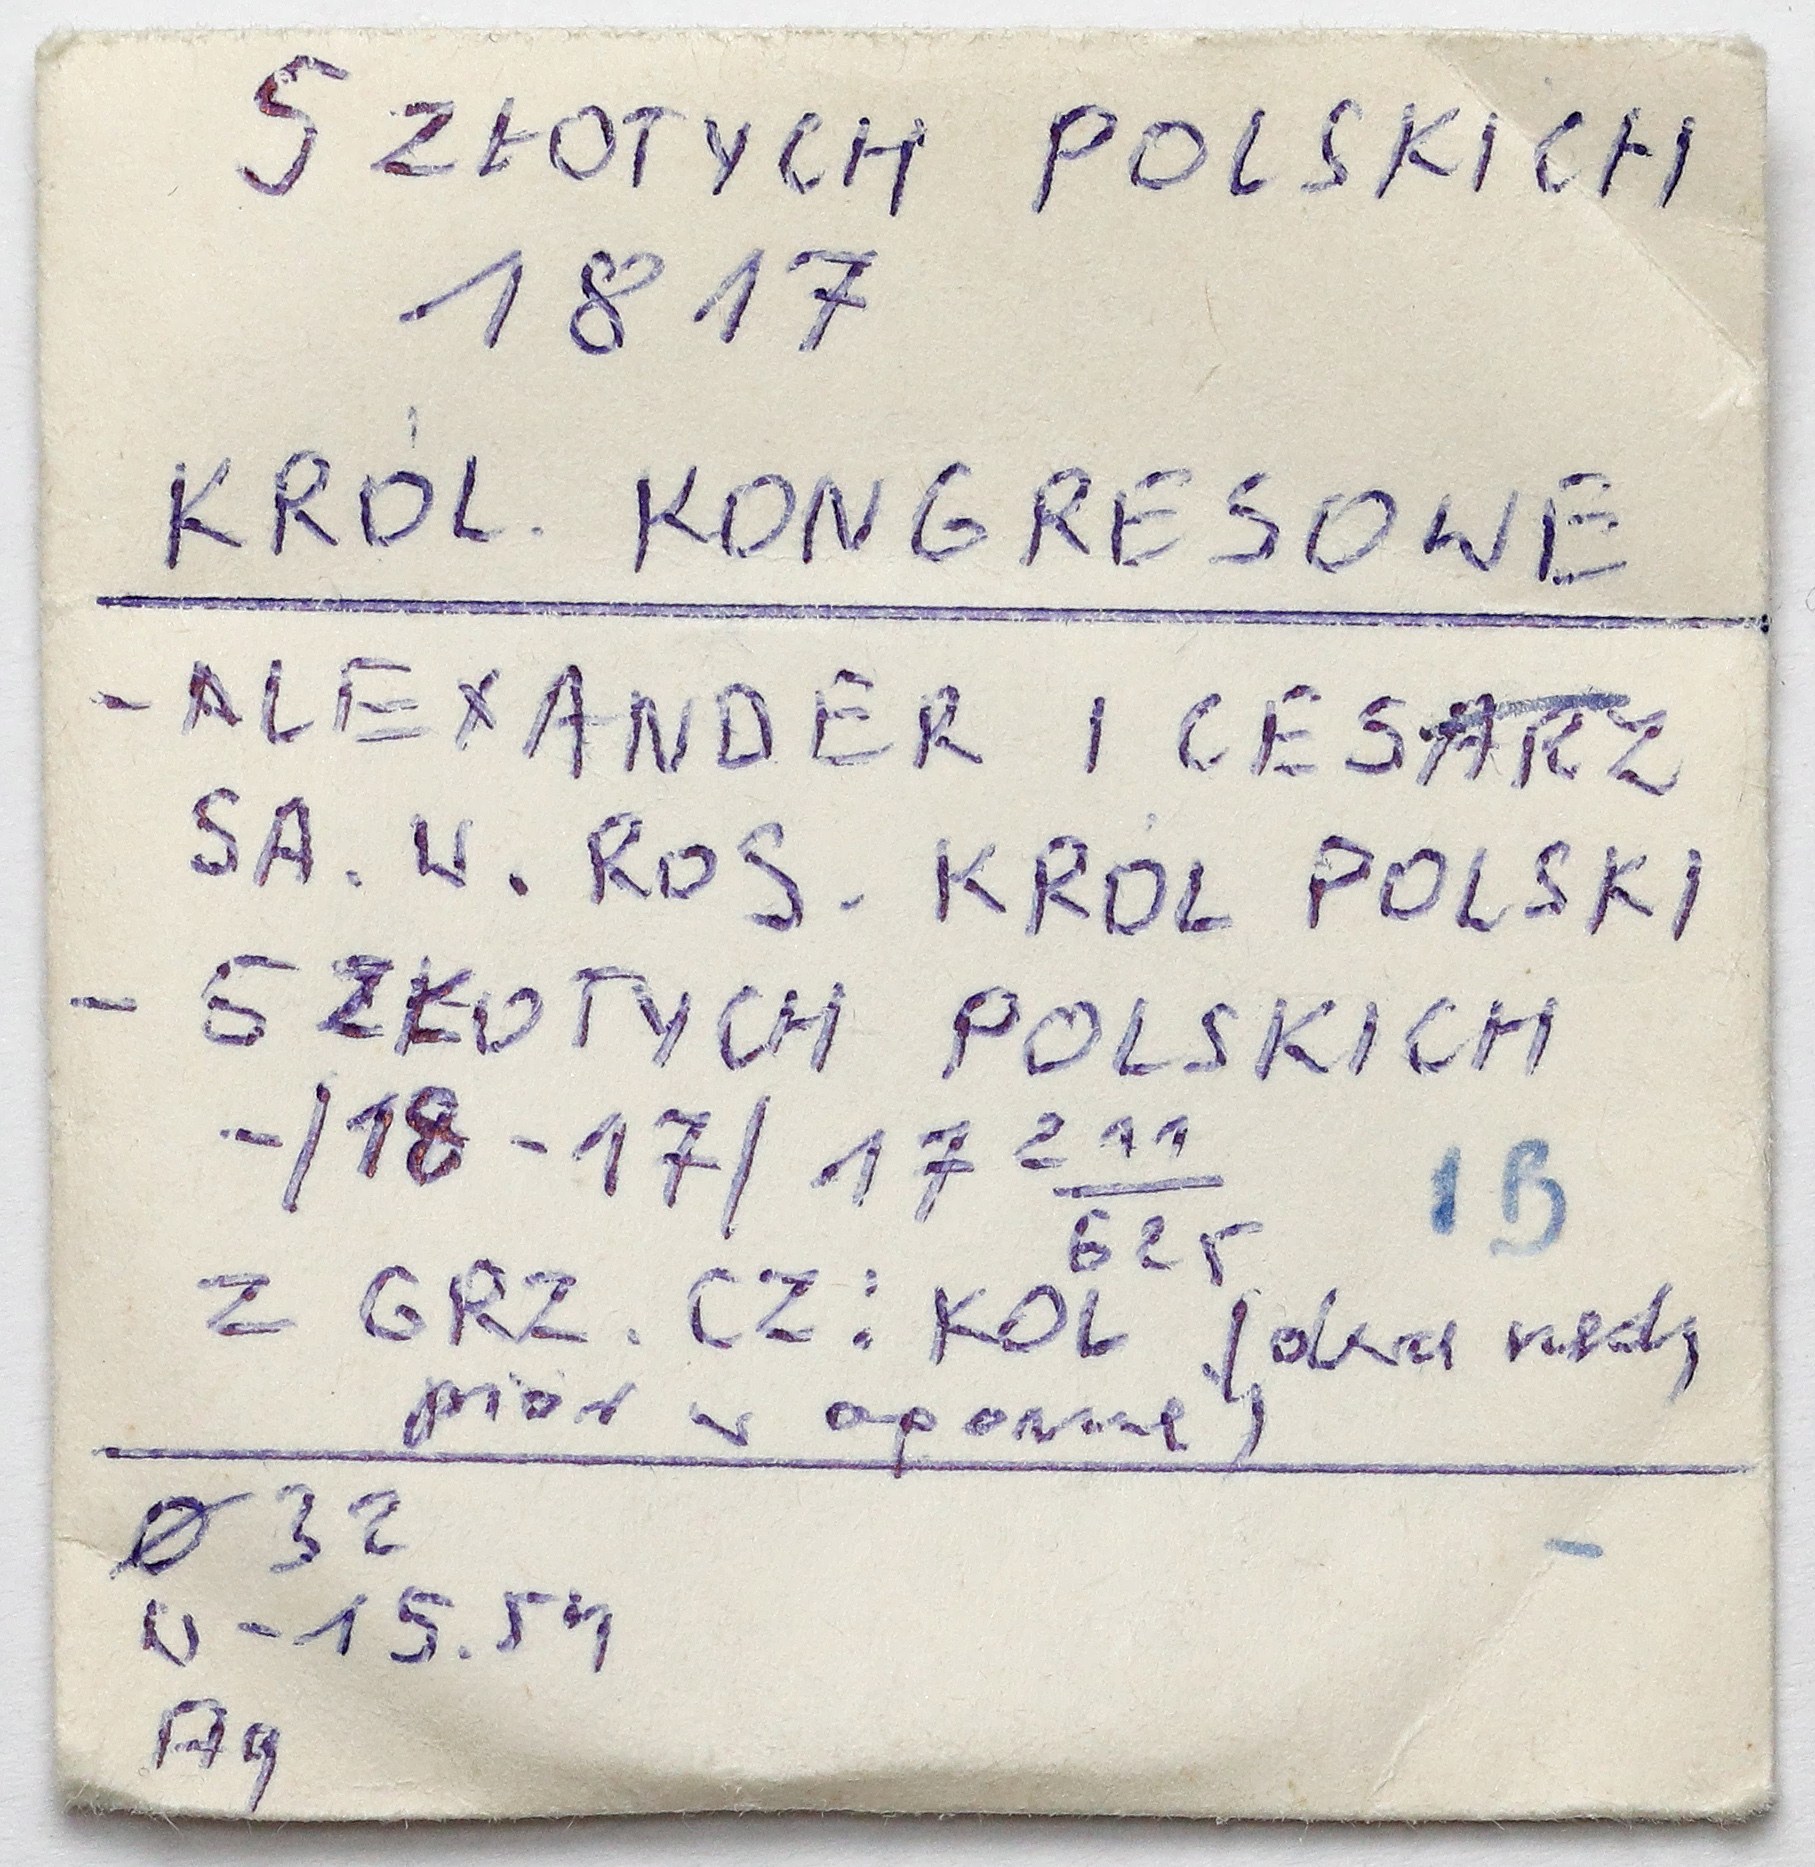 5 ZŁOTYCH POLSKICH
1817
KRÓL. KONGRESOWE
- ALEXANDER I CESARZ
SA. W. ROS. KRÓL POLSKI
- 5 ZŁOTYCH POLSKICH
-/18-17/ 17 211/625 1B
Z GRZ. CZ: KOL (dwa rzędy
piór w ogonie)
Ø 32
W - 15.54
Ag